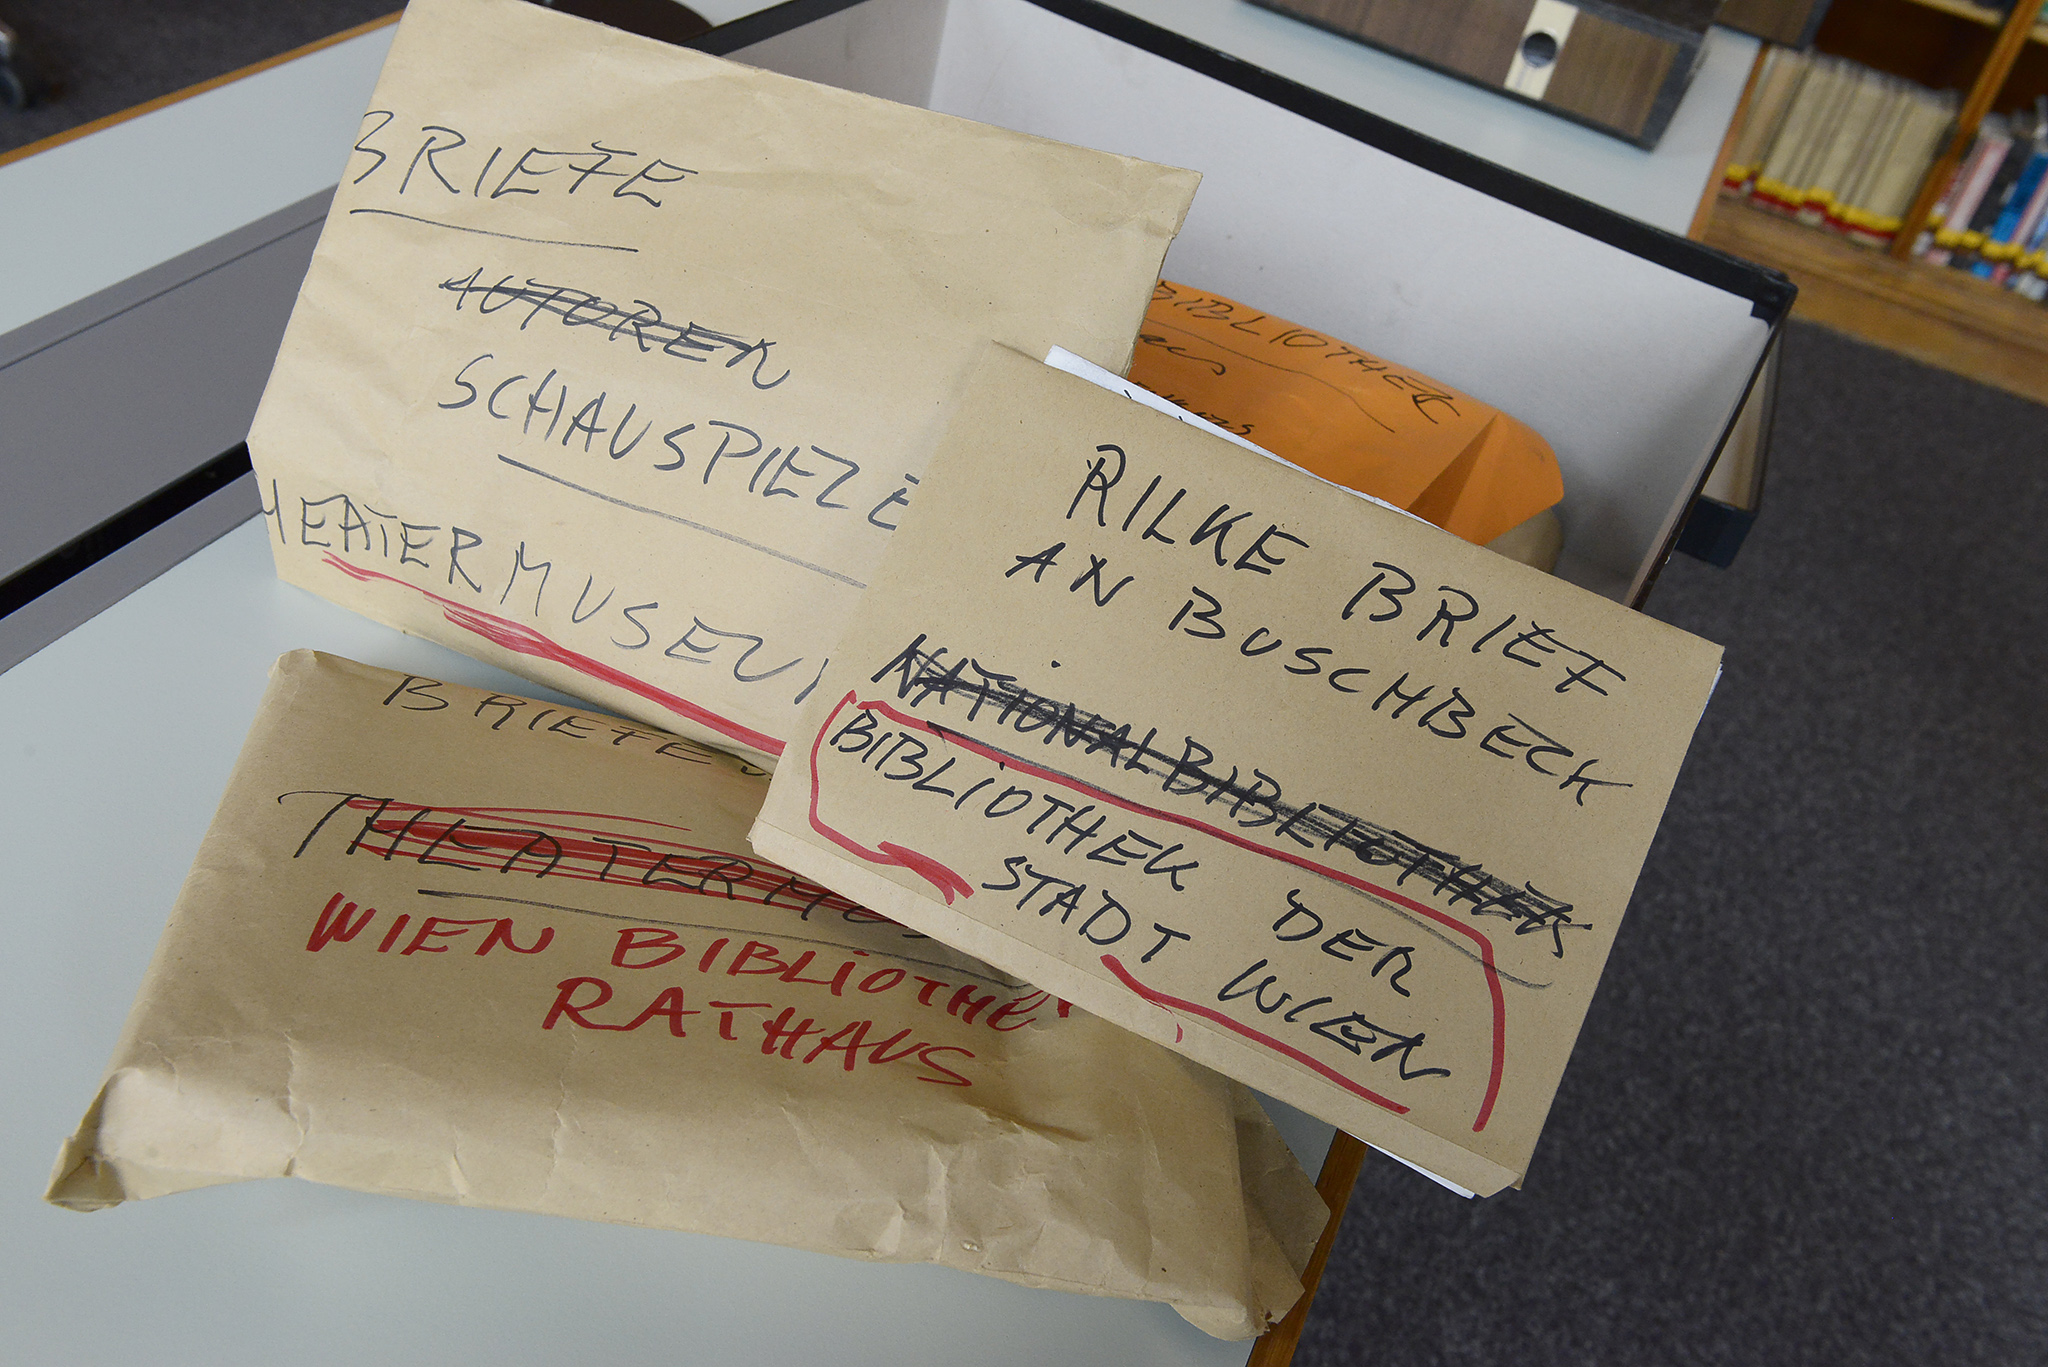 BRIEFE
AUTOREN
SCHAUSPIELE
THEATERMUSEUM
BIBLIOTHEK
RILKE BRIEF
AN BUSCHBECK
NATIONALBIBLIOTHEK
BIBLIOTHEK DER
STADT WIEN
BRIEFE
THEATERMUS
WIEN BIBLIOTHE
RATHAUS